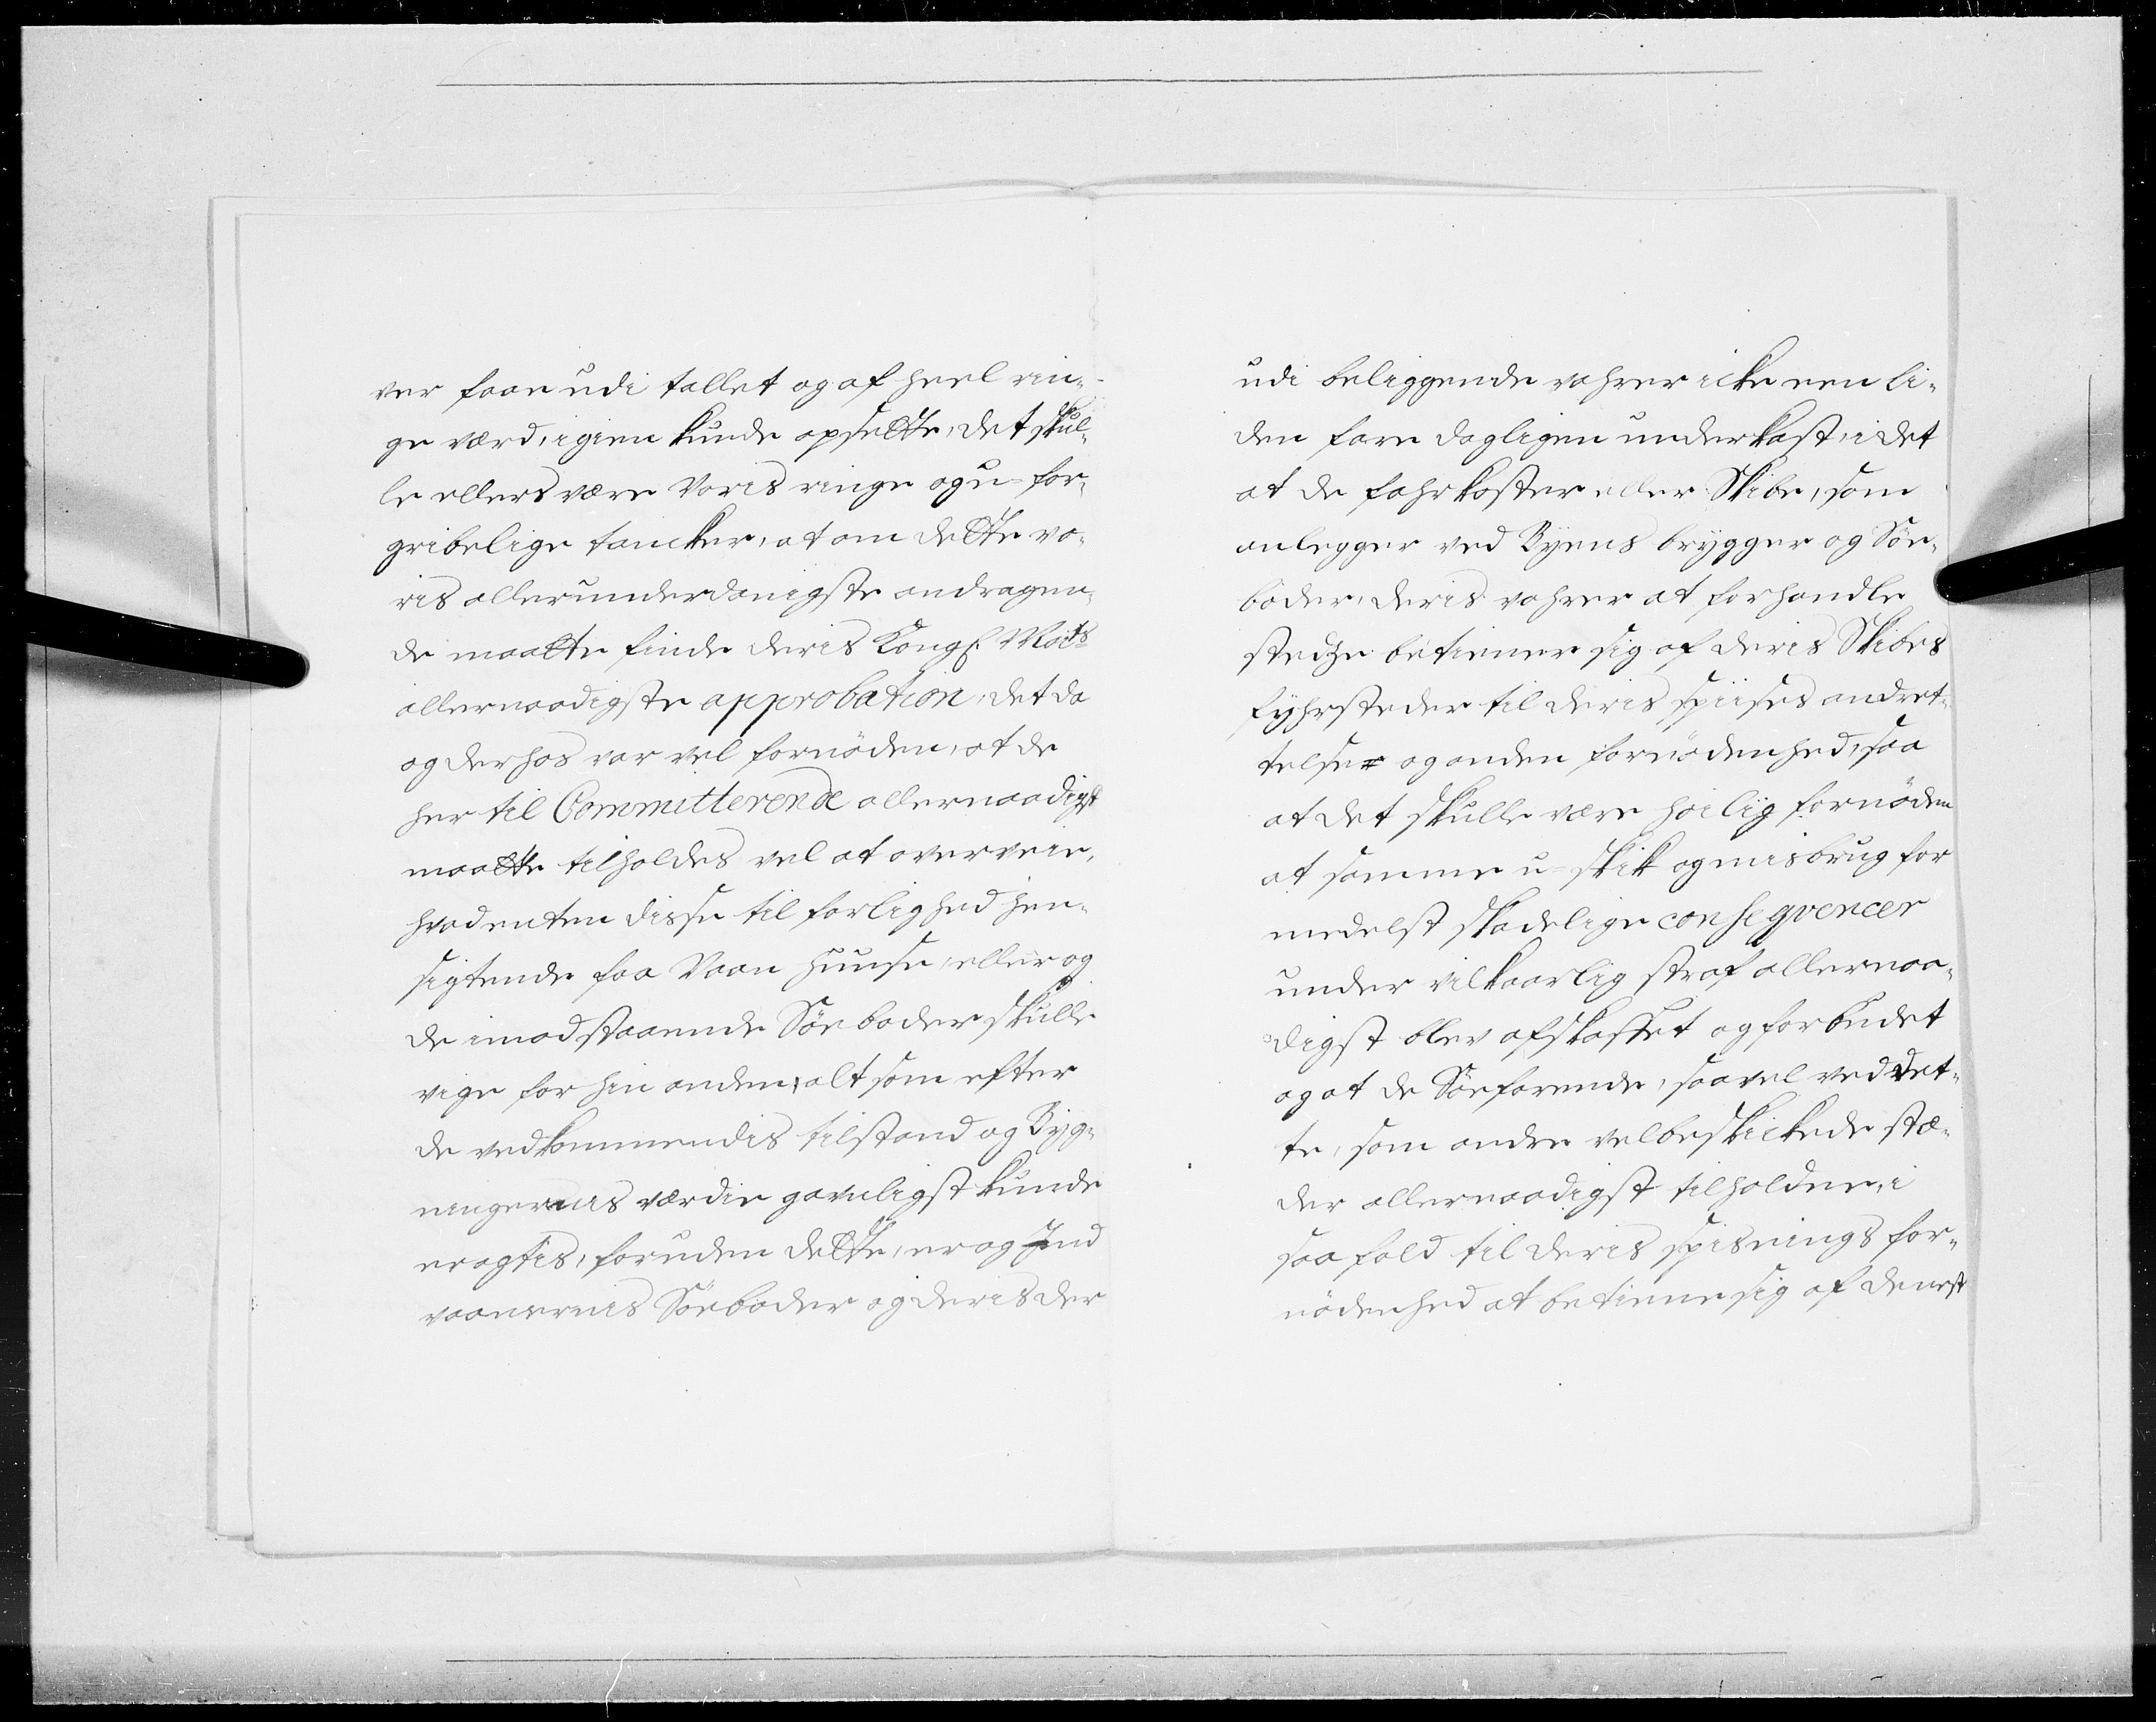 ver faae udi tallet og af heel rin-
ge værd, igien kunde opsætte, det skul-
le ellers være Voris ringe og u-for-
gribelige tancker, at om dette vo-
ris allerunderdanigste andragen-
de maatte finde deris Kongl Maÿts
allernaadigste approbation, det da
og derhos var vel fornöden, at de
her til Committerende allernaadigst
maatte tilholdes vel at overveie,
hvad enten disse til farlighed hen-
sigtende faa Vaan huuse, eller og
de imodstaaende Söeboder skulle
vige for hin anden, alt som efter
de vedkommendis tilstand og Byg-
ningernis værdie gavnligst kunde
eragtes, foruden dette, er og Ind
vaanernis Söeboder og deris der
udi beliggende vahrer icke een li-
den fare dagligen underkast, i det
at de fahrkoster eller Skibe, som
anlegger ved Byens brygger og Söe-
boder, deris vahrer at forhandle
stedze betiener sig af deris Skibes
fyhrsteder til deris spiises andret-
telse og anden fornödenhed, saa
at det skulle være höilig fornöden
at samme u-skik og misbrug for
medelst skadelige consegvencer
under vilkaarlig straf allernaa-
digst blev afskaffet og forbudet
og at de Söefarende, saavel ved det-
te, som andre velbeskickede stæ-
der allernaadigst tilholdes, i
saa fald til deris spisnings for-
nödenhed at betiene sig af denest